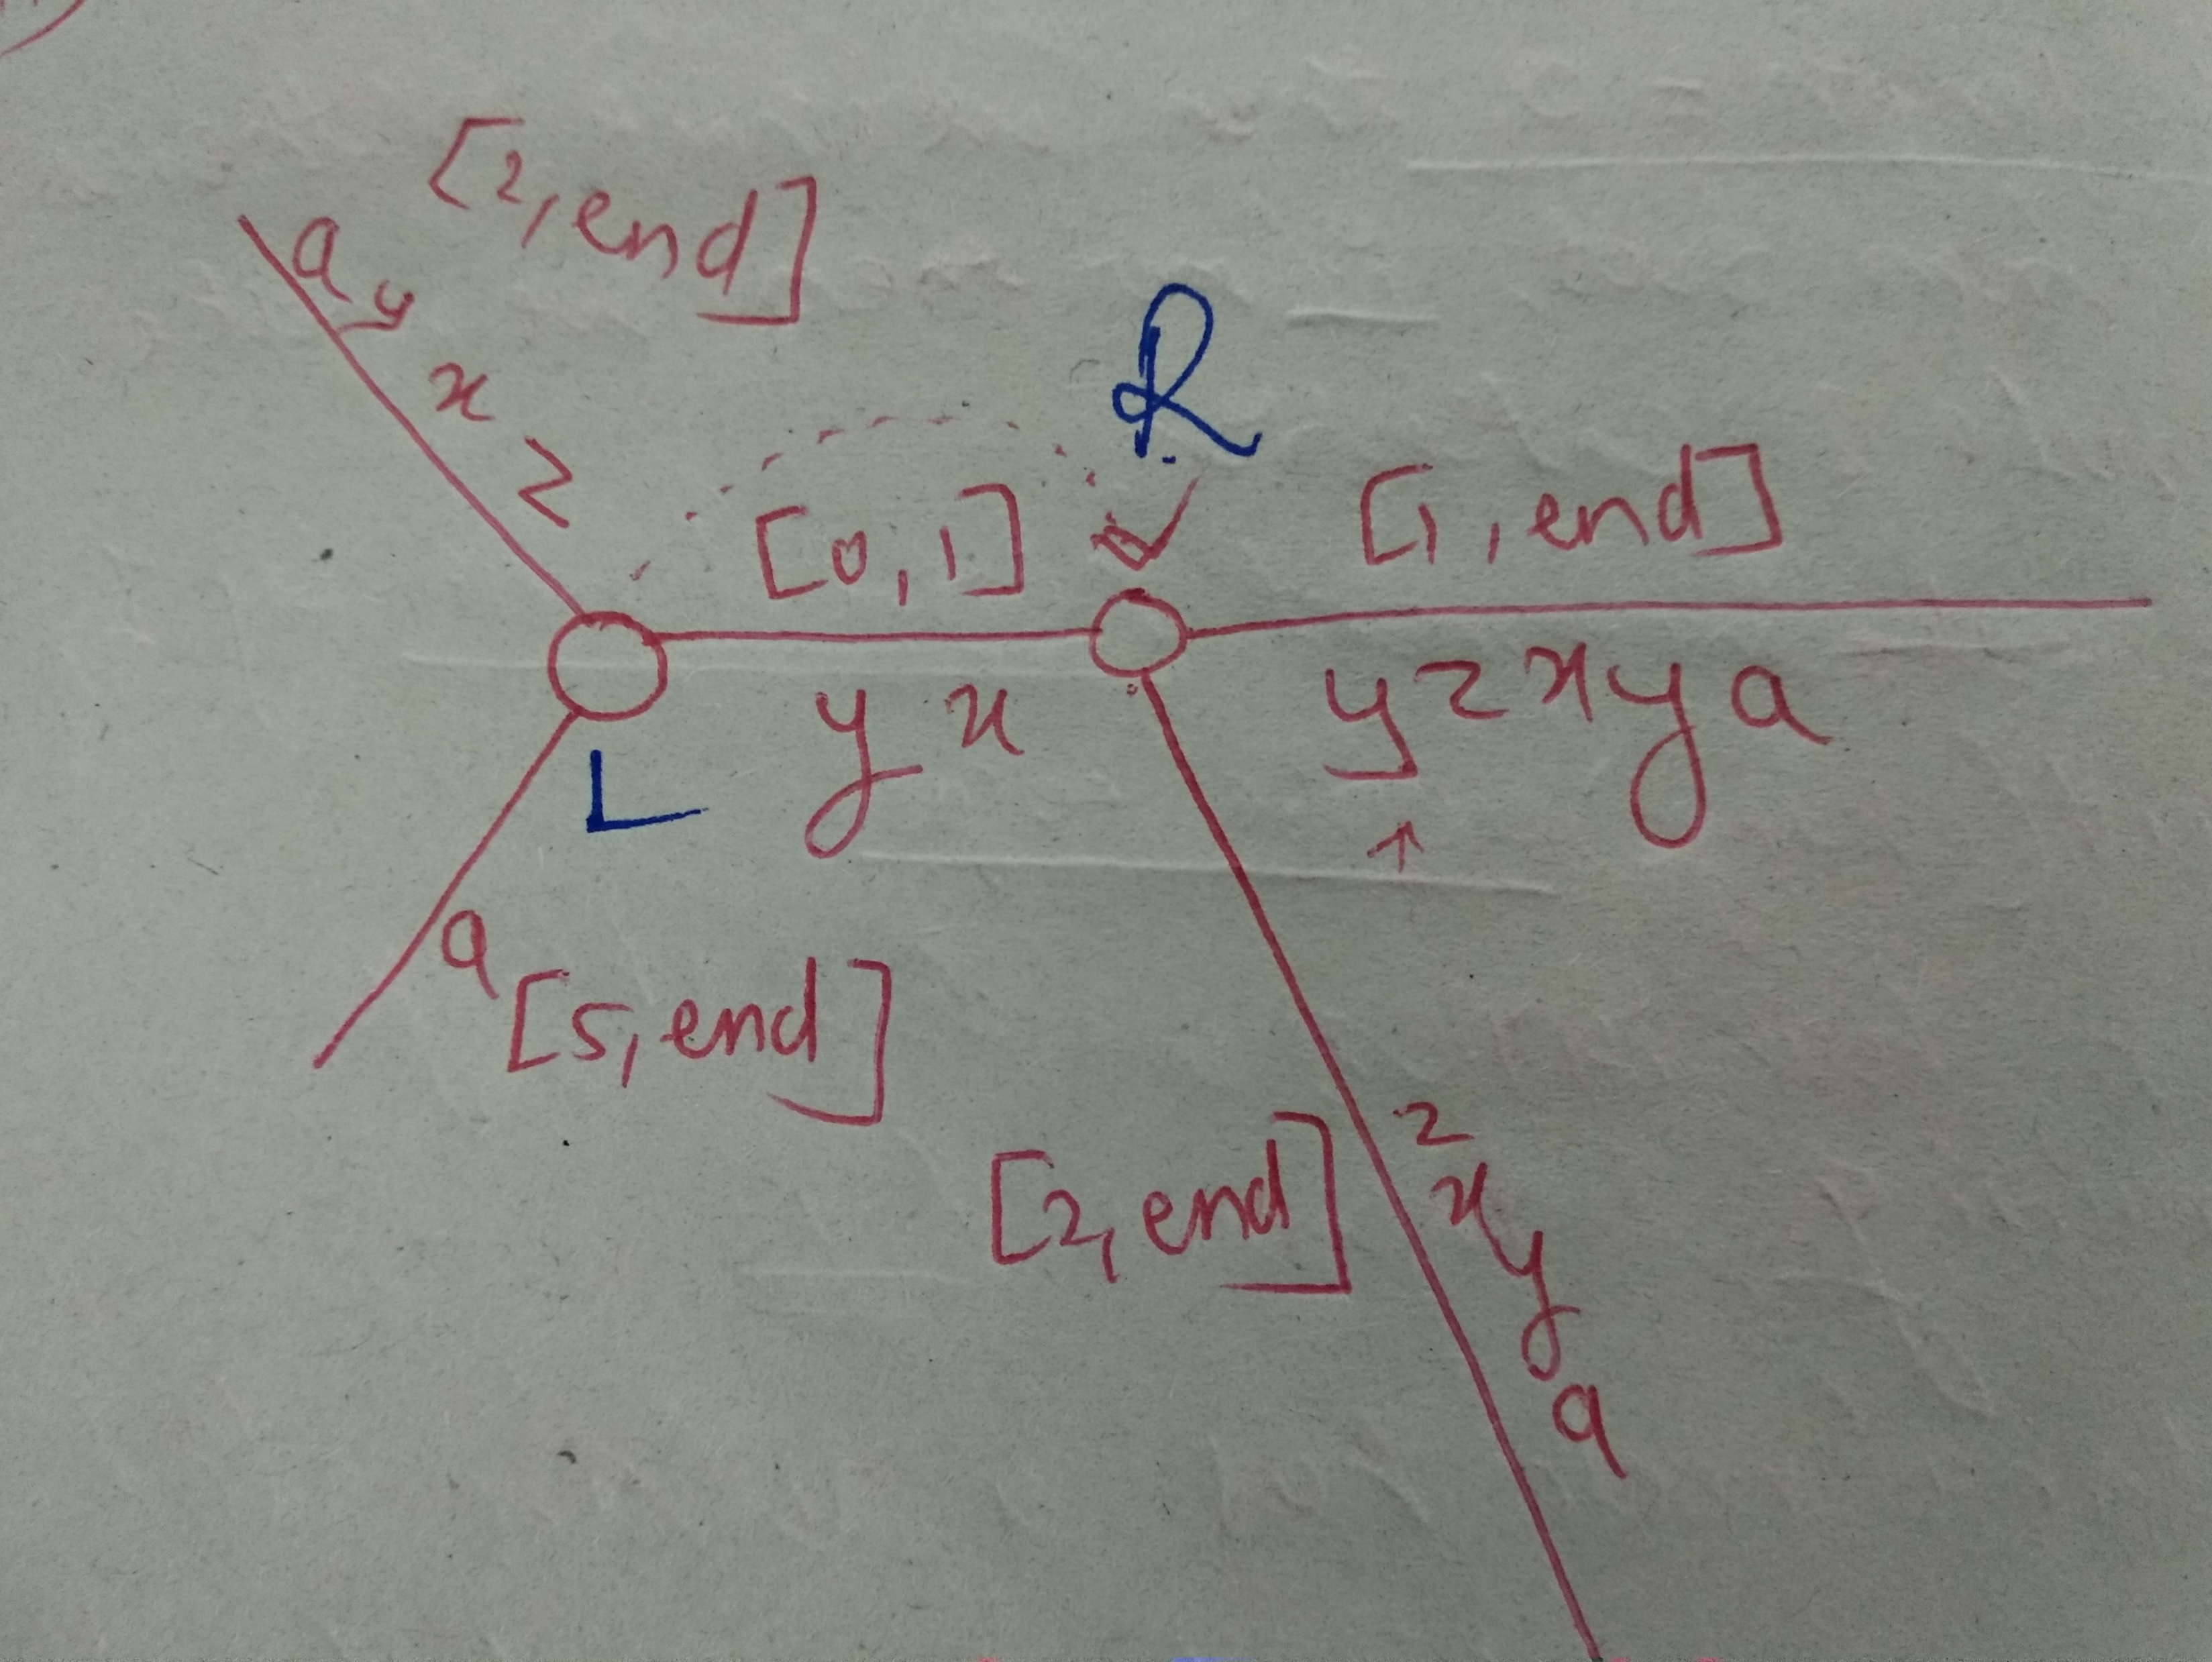 [2, end]
a y x z
R
[0, 1]
[1, end]
y x
y z x y a
L
a
[5, end]
[2, end]
z x y a